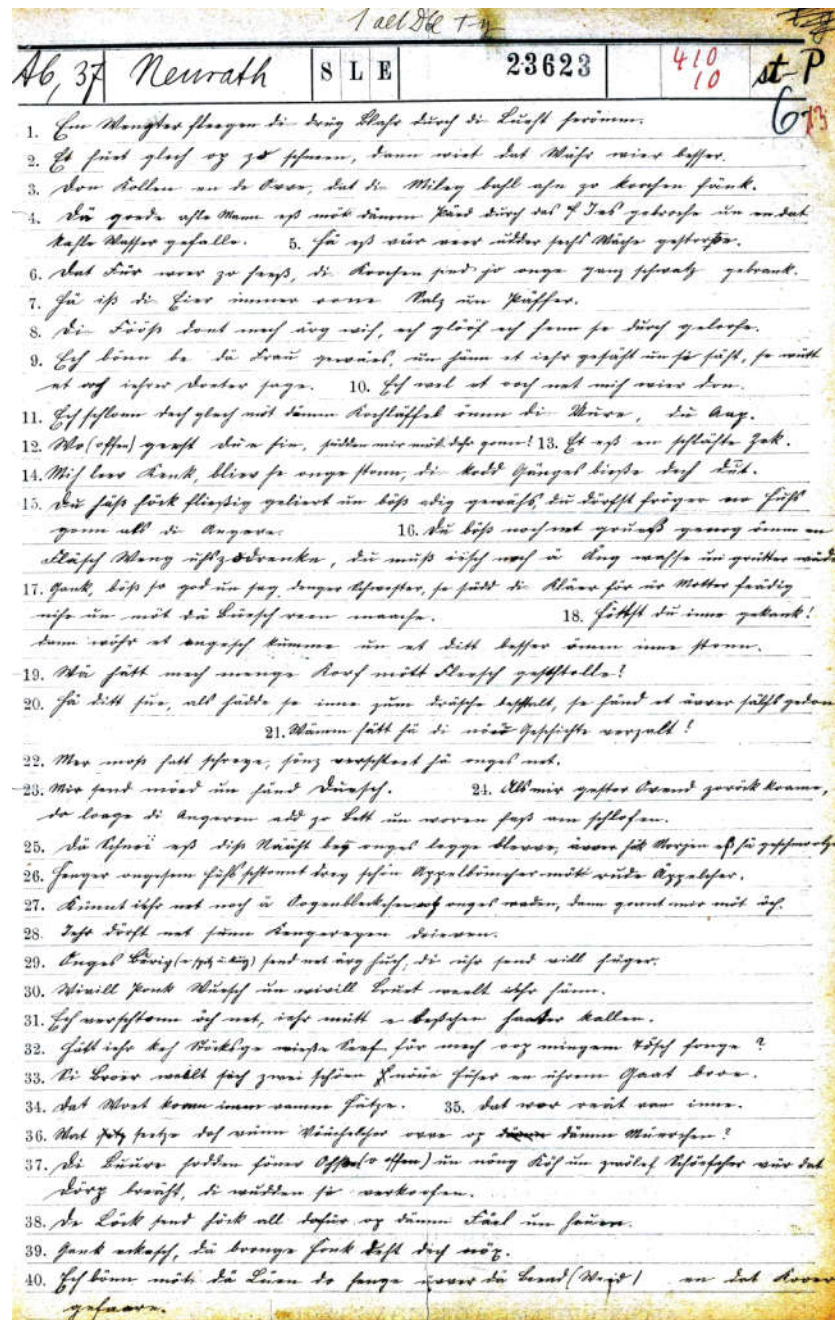 Ab, 37 Neurath S L E 23623 410 10 st-P
6
1. Em Wengter fleegen di drüg Blahr durch di Lueht heröm.
2. Et hüet glech op zo schneen, dann wiet dat Währ wier besser.
3. Don Kollen en de Ovve, dat di Mileg bahl ahn zo koochen fänk.
4. Dä goede ahle Mann eß möt dämm Päed durch das Ies gebroche un en dat
kahle Wasser gefalle. 5. Hä eß vür veer udder sechs Wäche gestorve.
6. Dat Für woer zo heeß, di Koochen send jo onge ganz schwatz gebrank.
7. Hä iß di Eier immer oone Salz un Päffer.
8. Di Fööß dont mech ärg wih, ech glööf ech henn se durch geloofe.
9. Ech bönn be dä Frau gewäes, un hänn et iehr gesäht un si säht, se wütt
et och iehrer Doeter sage. 10. Ech well et och net mih wier don.
11. Ech schlonn dech glech möt dämm Kochläffel ömm di Uure, du Aap.
12. Wo (offen) geehst due hin, südden mir möt dehr gonn! 13. Et eß en schlähte Zek.
14. Mih leev Kenk, bliev he onge stonn, di kodd Gänges bieße dech dut.
15. Du häß höck fließig geliert un böß adig gewähs, du dörfst fröger no Huhs
gonn als di Angere. 16. Du böß noch net grueß genog ömm en
Fläsch Weng uhszodrenke, du muß iesch noch ä Eng wahse un grütter wäde
17. Gank, böß so god un sag denger Schwester, se südd di Kläer för ür Motter feädig
nihe un möt dä Büesch reen maache. 18. Höttst du inne gekank!
dann wöhr et angesch kumme un et ditt besser ömm inne stonn.
19. Wä hätt mech menge Korf mött Fleesch gestolle?
20. Hä ditt sue, als hädde se inne zum dräsche bestallt, se händ et ävver sälfs gedon
21. Wämm hätt hä di nöu Geschichte verzalt?
22. Mer moß hatt schreye, sönz verschteet hä onges net.
23. Mir send möed un händ Duesch. 24. Als mir gester Ovend zoröck koame,
do loage di Angeren add zo Bett un woren faß am schlofen.
25. Dä Schnei eß diß Näeht bey onges legge blevve, ävver hük Morjen eß hä geschmolze
26. Henger ongesem Huhs schtonnt drey schön Appelbömcher möt rude Äppelcher.
27. Künnt iehr net noch ä Oogenbleckche op onges waden, dann gonnt mir möt öch.
28. Iehr dörft net sunn Kengereyen drieven.
29. Onges Bärig send net ärg huch, di uhr send vill hüger.
30. Wivill Ponk Wuesch un wivill Bruet weelt iehr hänn.
31. Ech verschtonn öch net, iehr mütt e beßchen haater kallen.
32. Hätt iehr keh Stöcksge wieße Seef för mech oop mingem Tösch fonge?
33. Si Broer wellt sech zwei schöen nöue Hüser en ührem Gaat boue.
34. Dat Woet koam imm vamm Hätze. 35. Dat wor reät van inne.
36. Wat seetze doh vunn Vöüchelcher ovve op dämm Müerchen?
37. Di Buure hodden föner Ohße (o offen) un nöng Köh un zwölef Schöefcher vür dat
Dörp breäht, di wudden si verkoofen.
38. De Löck send höck all dofür op dämm Fäel un hauen.
39. Gank eckesch, dä broonge Honk deht dech nöx.
40. Ech bönn möt dä Lüen do henge üvver dä Bend (Weid) en dat Koorn
gefaare.